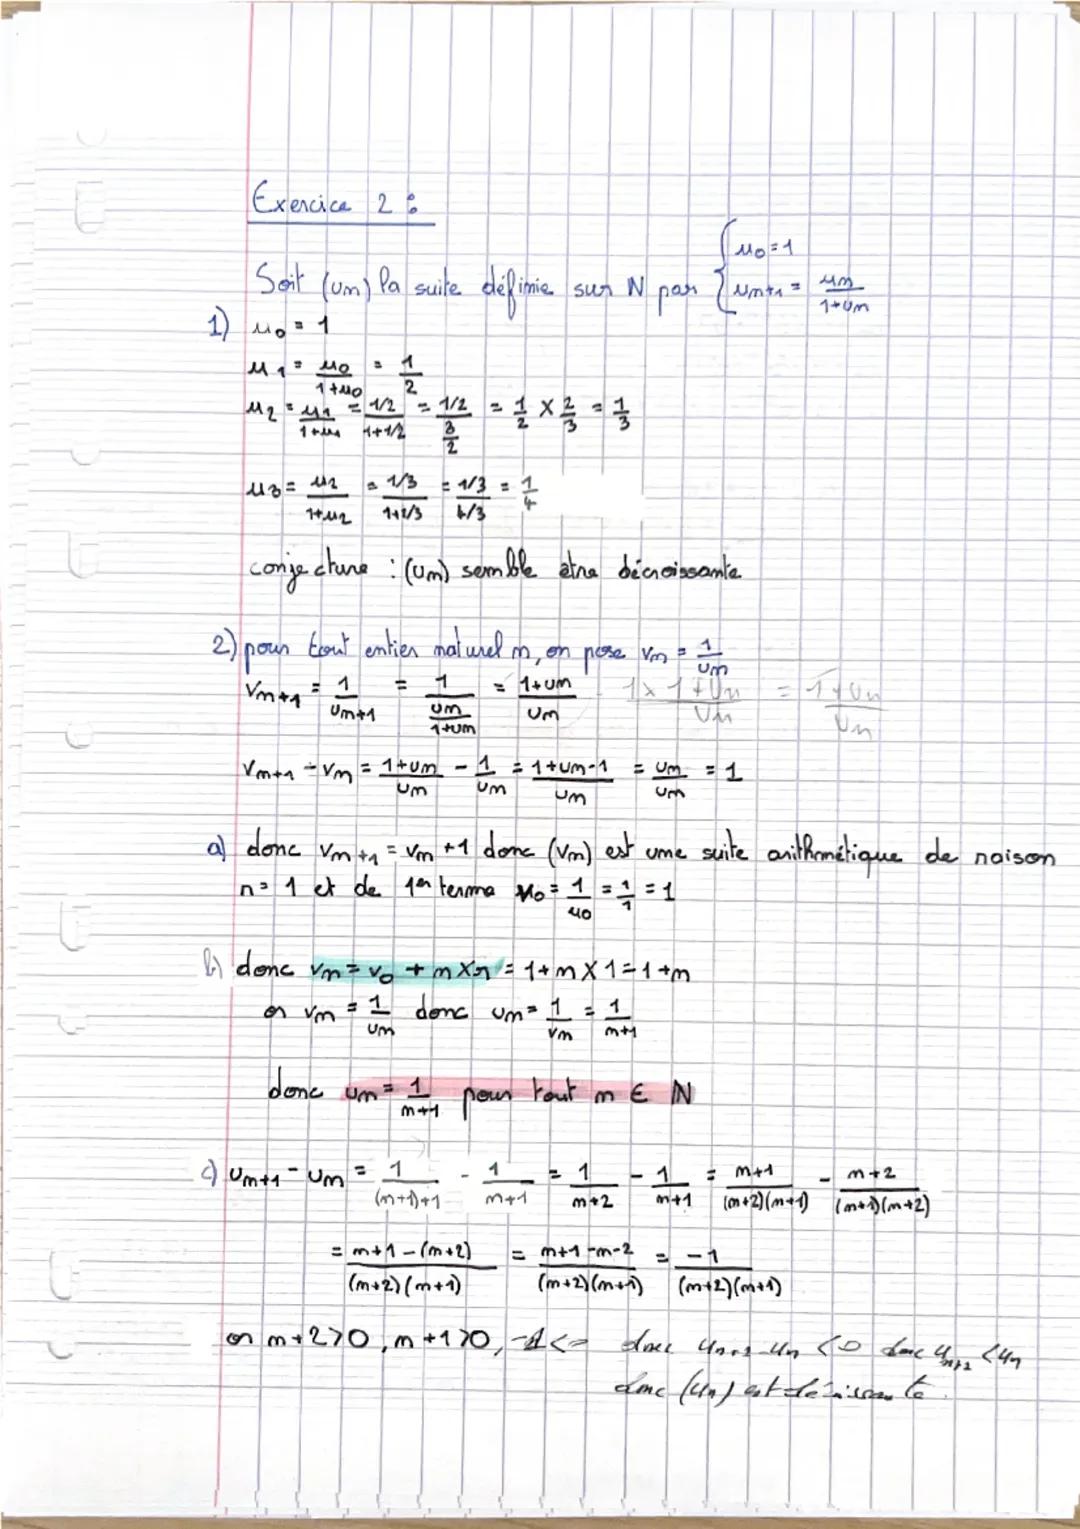 Exercice 2 :
Soit (un) la suite définie sur N par { u0 = 1 ; un+1 = un/(1+un)
1) u0 = 1
u1 = u0/(1+u0) = 1/2
u2 = u1/(1+u1) = (1/2)/(1+1/2) = (1/2)/(3/2) = 1/2 × 2/3 = 1/3
u3 = u2/(1+u2) = (1/3)/(1+1/3) = (1/3)/(4/3) = 1/4
conjecture : (un) semble être décroissante
2) pour tout entier naturel n, on pose vn = 1/un
vn+1 = 1/un+1 = 1/(un/(1+un)) = (1+un)/un 1×1+un/un = 1+un/un
vn+1 - vn = (1+un)/un - 1/un = (1+un-1)/un = un/un = 1
a) donc vn+1 = vn +1 donc (vn) est une suite arithmétique de raison
r = 1 et de 1er terme v0 = 1/u0 = 1/1 = 1
b) donc vn = v0 + n×r = 1+n×1 = 1+n
or vn = 1/un donc un = 1/vn = 1/(n+1)
donc un = 1/(n+1) pour tout n ∈ N
c) un+1 - un = 1/((n+1)+1) - 1/(n+1) = 1/(n+2) - 1/(n+1) = (n+1)/((n+2)(n+1)) - (n+2)/((n+1)(n+2))
= (n+1-(n+2))/((n+2)(n+1)) = (n+1-n-2)/((n+2)(n+1)) = -1/((n+2)(n+1))
or n+2>0, n+1>0, -1<0 donc un+1-un <0 donc un+1 <un
donc (un) est décroissante.